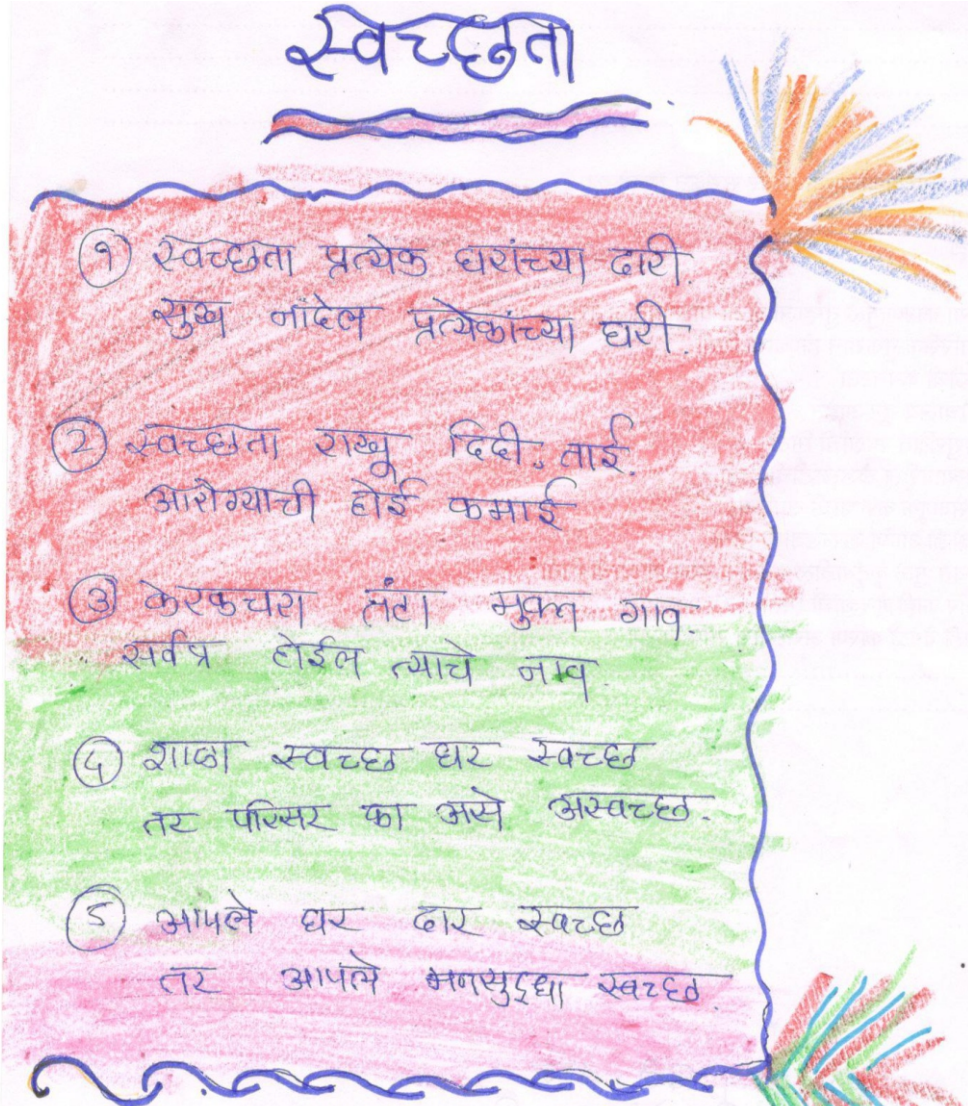 स्वच्छता
१ स्वच्छता प्रत्येक घरांच्या दारी.
सुख नांदेल प्रत्येकांच्या घरी.
2 स्वच्छता राखू दिदी, ताई.
आरोग्याची होई कमाई
३ केरकचरा तंटा मुक्त गाव
सर्वत्र होईल त्याचे नाव
४ शाळा स्वच्छ घर स्वच्छ
तर परिसर का असे अस्वच्छ.
5 आपले घर दार स्वच्छ
तर आपले मनसुद्धा स्वच्छ.